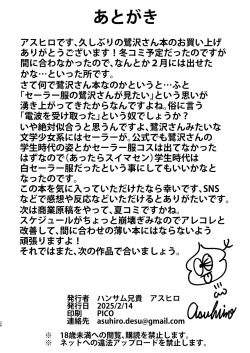 あとがき
アスヒロです、久しぶりの鷺沢さん本のお買い上げ
ありがとうございます！冬コミ予定だったのですが
間に合わなかったので、なんとか2月には出せた
かな…といった所です。
さて何で鷺沢さん本なのかというと…ふと
「セーラー服の鷺沢さんが見たい」という思いが
湧き上がってきたからなんですよね。俗に言う
「電波を受け取った」という奴でしょうか？
いや絶対似合うと思うんですよ、鷺沢さんみたいな
文学少女系にはセーラーが。公式でも鷺沢さんの
学生時代の姿とかセーラー服コスは出てなかった
はずなので(あったらスイマセン)学生時代は
白セーラー服だったという事にしてもいいかなと
なったのです。
この本を気に入っていただけたなら幸いです、SNS
などで感想や反応などいただけるとありがたいです。
次は商業原稿をやって、夏コミですかね。
スケジュールがちょっと崩壊ぎみなのでアレコレと
改善して、間に合わせの薄い本にはならないよう
頑張りますよ！
それではまた、次の作品で会いましょう。
発行者 ハンサム兄貴 アスヒロ
発行日 2025/2/14
印刷 PICO
連絡先 asuhiro.desu@gmail.com
※ 18歳未満への閲覧、購読を禁止します。
※ ネットへの違法アップロードを禁止します。
asuhiro